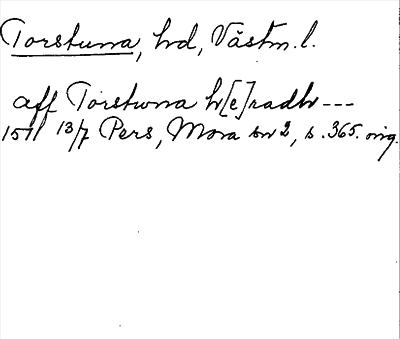 Torstuna, hd, Västm. l.
aff Torstwna h[e]radh ---
1511 13/7 Pers, Mora sn 2, s. 365. orig.